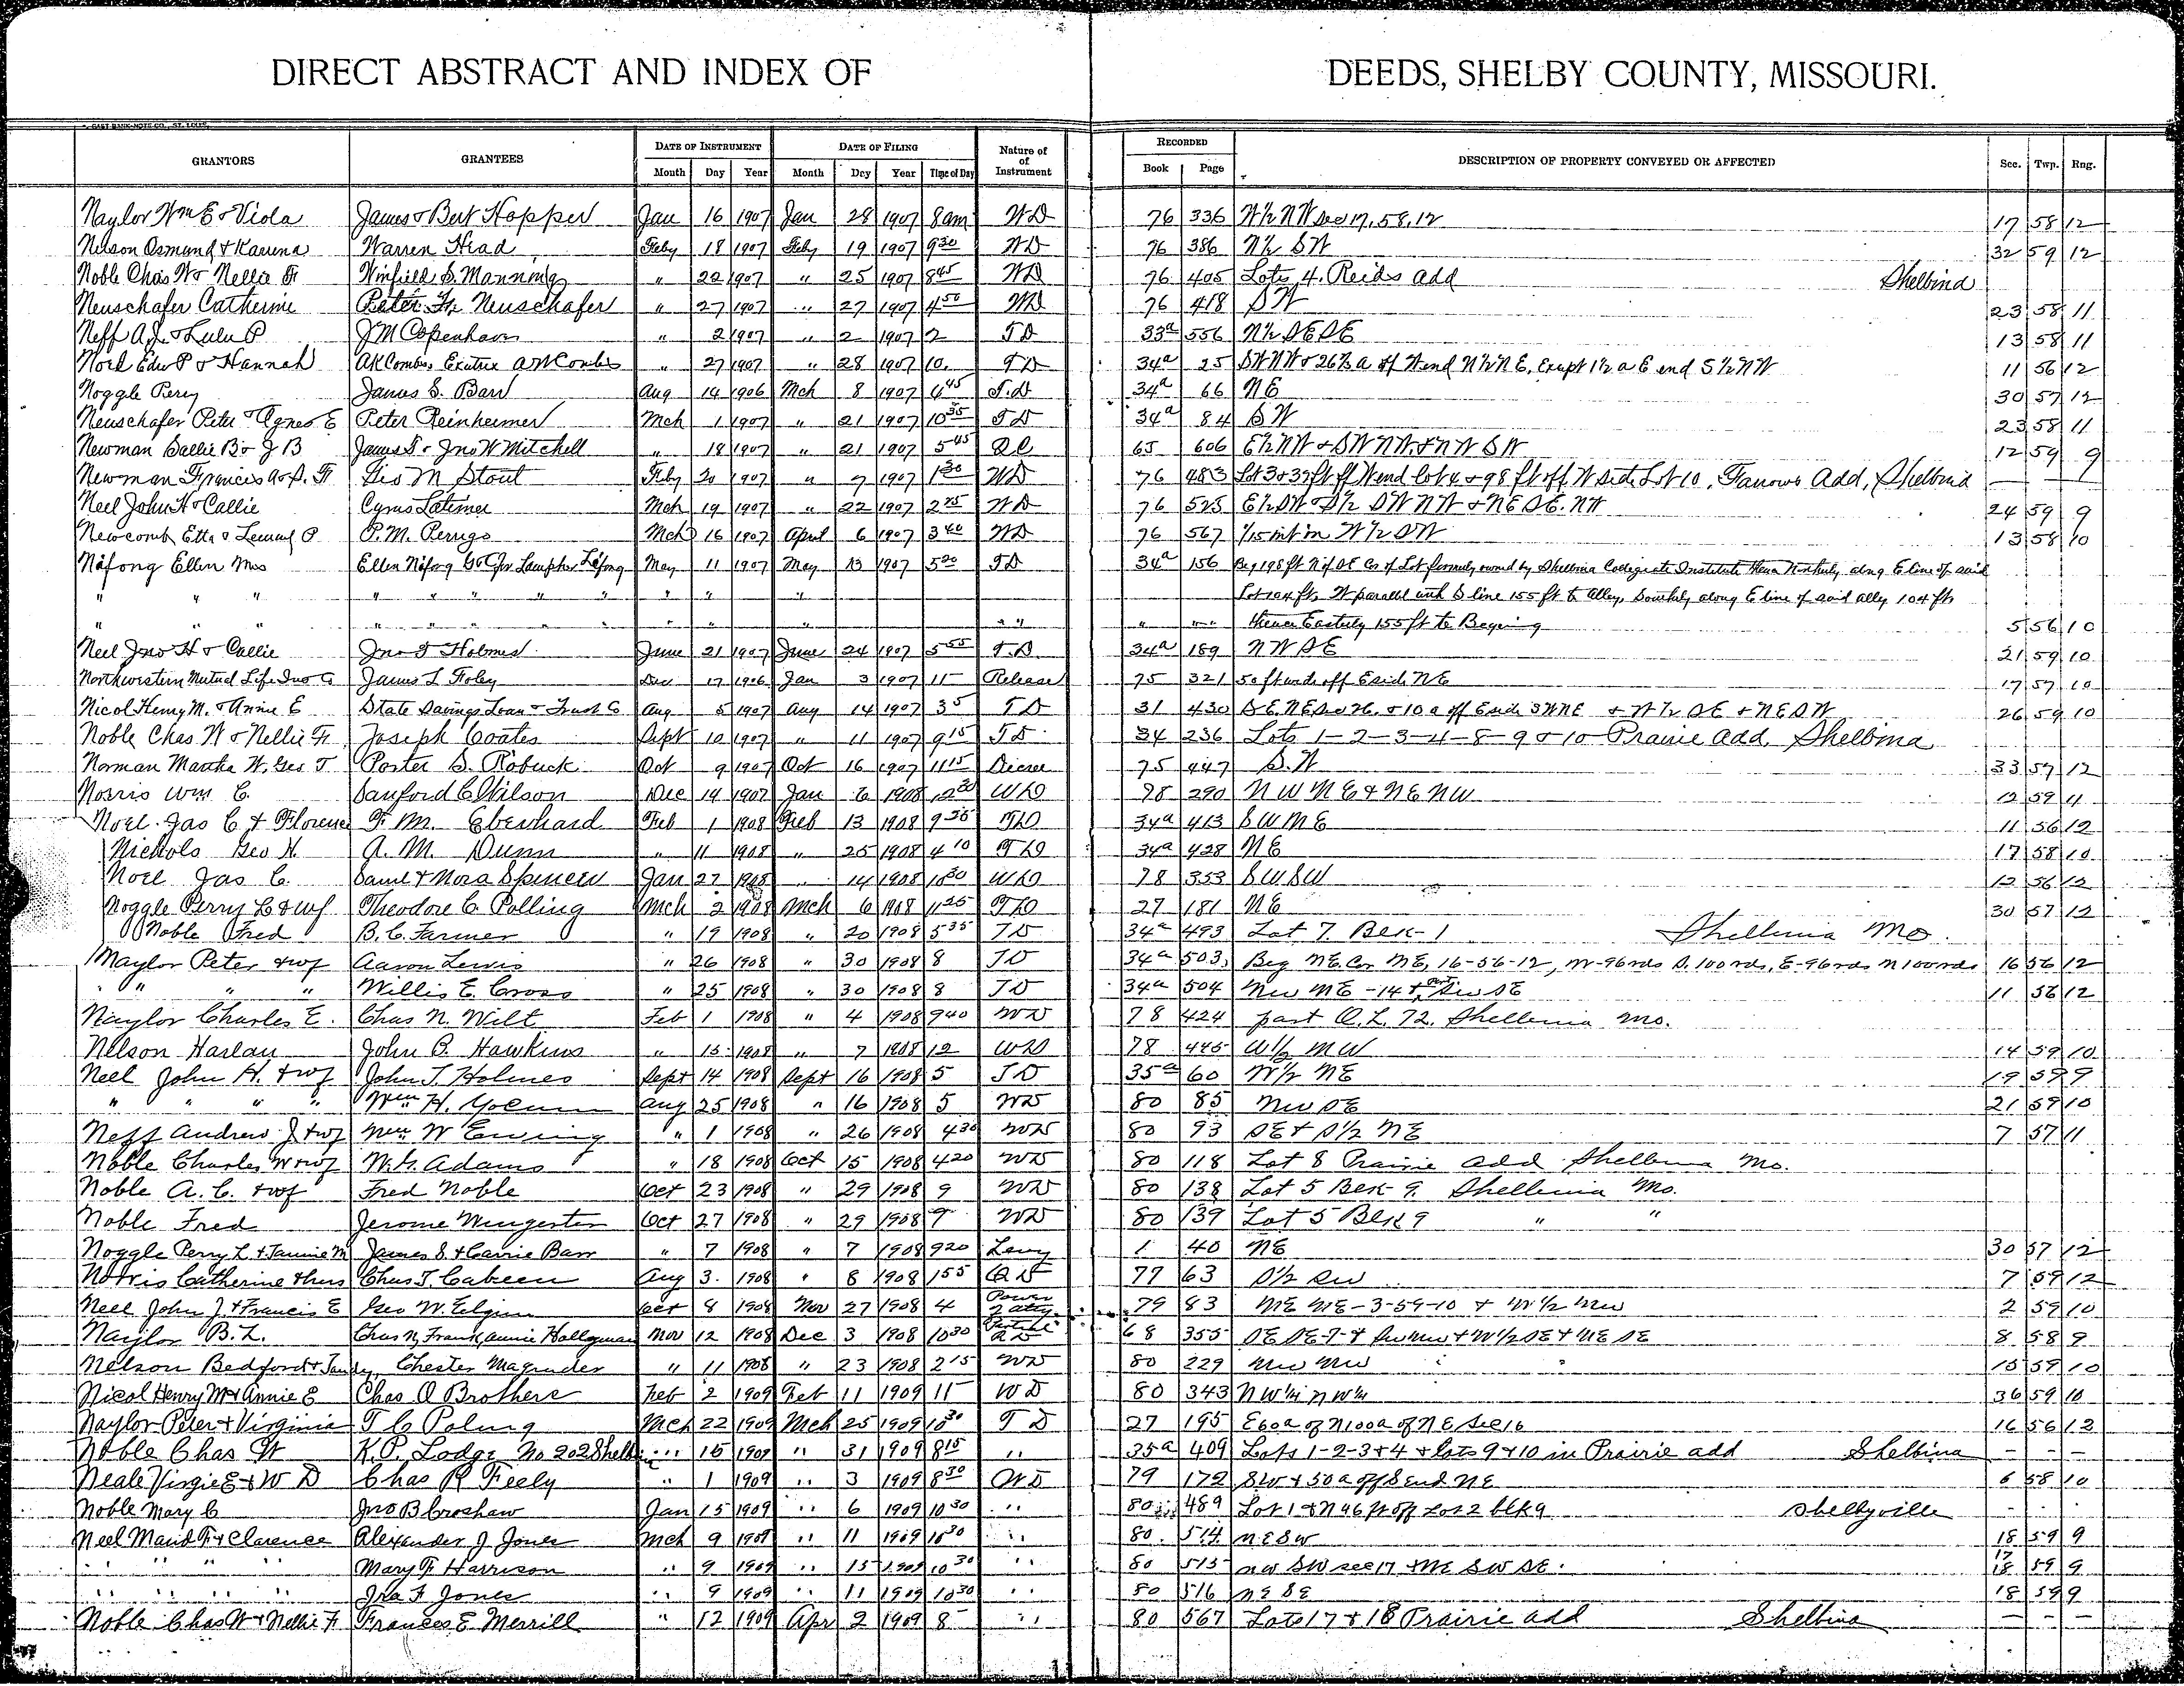 DIRECT ABSTRACT AND INDEX OF DEEDS, SHELBY COUNTY, MISSOURI.
GRANTORS GRANTEES DATE OF INSTRUMENT DATE OF FILING Nature of Instrument RECORDED DESCRIPTION OF PROPERTY CONVEYED OR AFFECTED Sec. Twp. Rng.
Month Day Year Month Day Year Time of Day Book Page
Naylor Wm E & Viola James & Bert Hopper Jan 16 1907 Jan 28 1907 8am WD 76 336 W½ NW Sec 17, 58, 12 17 58 12
Nelson Osmund & Karena Warren Head Feby 18 1907 Feby 19 1907 9 30 WD 76 386 N½ SW 32 59 12
Noble Chas W & Nellie F Winfield S. Manning " 22 1907 " 25 1907 8 45 WD 76 405 Lots 4. Reids add Shelbina
Neuschafer Catherine Peter H Neuschafer " 27 1907 " 27 1907 4 50 WD 76 418 SW 23 58 11
Neff A.J. & Lulu P J M Copenhaver " 2 1907 " 2 1907 2 TD 33a 556 N½ SE SE 13 58 11
Noel Edw P & Hannah AK Combs, Exutrix A W Combs " 27 1907 " 28 1907 10 TD 34a 25 SW NW & 26⅔ a off W end N½ NE, Exept 1½ a E end S½ NW 11 56 12
Noggle Perry James S. Barr Aug 14 1906 Mch 8 1907 6 45 T.D 34a 66 NE 30 57 12
Neuschafer Peter & Agnes E Peter Reinheimer Mch 1 1907 " 21 1907 10 35 TD 34a 84 SW 23 58 11
Newman Sallie B & J B James T & Jno W Mitchell " 18 1907 " 21 1907 5 45 QC 65 606 E½ NW & SW NW & NW SW 12 59 9
Newman Francis A & S. F Geo M Stout Feby 20 1907 " 7 1907 1 30 WD 76 483 Lot 3 & 39 ft off W end lot 4 & 98 ft off W side Lot 10, Farrows Add, Shelbina
Neel John H & Callie Cyrus Latimer Mch 19 1907 " 22 1907 2 25 WD 76 525 E½ SW & S½ SW NW & NE SE NW 24 59 9
Newcomb Etta & Lemuel P P. M. Perrigo Mch 16 1907 April 6 1907 3 40 WD 76 567 1/15 int in W½ SW 13 58 10
Nifong Ellen Mrs Ellen Nifong May 11 1907 May 13 1907 5 20 TD 34a 156 Beg 198 ft N of SE Cor of Lot formerly owned by Shelbina Collegiate Institute thence Northerly along E line of said
" " " " " " " " " " " Lot 104 ft, W parallel with S line 155 ft to alley, Southerly along E line of said alley 104 ft
" " " " " " " " " " " thence Easterly 155 ft to Begining 5 56 10
Neel Jno H & Callie Jno T Holmes June 21 1907 June 24 1907 5 55 T.D 34a 189 NW SE 21 59 10
Northwestern Mutual Life Ins Co James L Foley Dec 17 1906 Jan 3 1907 11 Release 75 321 50 ft wide off E side NE 17 57 10
Nicol Henry M. & Annie E State Savings Loan & Trust Co Aug 5 1907 Aug 14 1907 3 5 TD 31 430 & 10 a off E side SW NE & W½ SE & NE SW 26 59 10
Noble Chas W & Nellie F Joseph Coates Sept 10 1907 " 11 1907 9 15 TD 34 236 Lots 1-2-3-4-8-9 & 10 Prairie add, Shelbina
Norman Martha W, Geo T Porter S. Robuck Oct 9 1907 Oct 16 1907 11 15 Decree 75 447 S.W 33 57 12
Norris Wm C. Sanford C Wilson Dec 14 1907 Jan 6 1908 12 30 WD 78 290 NW NE & NE NW 12 59 11
Noel Jas C & Florence F. M. Eberhard Feb 1 1908 Feb 13 1908 9 35 TD 34a 413 SW NE 11 56 12
Nichols Geo H. A. M. Dunn " 11 1908 " 25 1908 4 10 TD 34a 428 NE 17 58 10
Noel Jas C. Saml & Nora Spencer Jan 27 1908 " 14 1908 10 30 WD 78 353 SW SW 12 56 12
Noggle Perry L & wf Theodore C. Polling Mch 2 1908 Mch 6 1908 11 25 TD 27 181 NE 30 57 12
Noble Fred B. C. Farmer " 19 1908 " 20 1908 5 35 TD 34a 493 Lot 7. Blk-1 Shelbina Mo.
Naylor Peter & wf Aaron Lewis " 26 1908 " 30 1908 8 TD 34a 503 Beg NE. Cor NE, 16-56-12, W-96 rds S. 100 rds, E-96 rds N 100 rds 16 56 12
" " " Willis E. Cross " 25 1908 " 30 1908 8 TD 34a 504 NW NE -14 & SW SE 11 56 12
Naylor Charles E. Chas N. Wilt Feb 1 1908 " 4 1908 9 40 WD 78 424 part O.L. 72. Shelbina Mo.
Nelson Harlan John B. Hawkins " 15 1908 " 7 1908 12 WD 78 445 W½ NW 14 59 10
Neel John H. & wf John T. Holmes Sept 14 1908 Sept 16 1908 5 TD 35a 60 W½ NE 19 59 9
" " " " Wm H. Yocum Aug 25 1908 " 16 1908 5 WD 80 85 NW SE 21 59 10
Neff Andrew J & wf Wm W Ewing " 1 1908 " 26 1908 4 30 WD 80 93 SE & S½ NE 7 57 11
Noble Charles W & wf W. G. Adams " 18 1908 Oct 15 1908 4 20 WD 80 118 Lot 8 Prairie add Shelbina Mo.
Noble A. C. & wf Fred Noble Oct 23 1908 " 29 1908 9 WD 80 138 Lot 5 Blk 9. Shelbina Mo.
Noble Fred Jerome Wingerter Oct 27 1908 " 29 1908 9 WD 80 139 Lot 5 Blk 9 " "
Noggle Perry L. & Fannie M James S. & Carrie Barr " 7 1908 " 7 1908 9 20 Levy 1 40 NE 30 57 12
Norris Catherine & hus Chas T. Cabeen Aug 3. 1908 " 8 1908 1 55 QD 77 63 S½ SW 7 59 12
Neel John J. & Francis E Geo W. Elgin Oct 8 1908 Nov 27 1908 4 Power of atty. 79 83 NE NE-3-59-10 & W½ NW 2 59 10
Naylor B. L. Chas N, Frank, Annie Hollyman Nov 12 1908 Dec 3 1908 10 30 Partial RD 68 355 SE SE-7-& SW NW & W½ SE & NE SE 8 58 9
Nelson Bedford & Tandy Chester Magruder " 11 1908 " 23 1908 2 15 WD 80 229 NW NW 15 59 10
Nicol Henry M & Annie E Chas O Brothers Feb 2 1909 Feb 11 1909 11 WD 80 343 NW¼ NW¼ 36 59 10
Naylor Peter & Virginia T C Poling Mch 22 1909 Mch 25 1909 10 30 TD 27 195 E 60a of N 100a of NE Sec 16 16 56 12
Noble Chas W K.P. Lodge No 202 Shelbina " 15 1909 " 31 1909 8 15 " 35a 409 Lots 1-2-3 & 4 & lots 9 & 10 in Prairie add Shelbina - - -
Neale Virgie E & W D Chas R Feely " 1 1909 " 3 1909 8 30 WD 79 172 SW & 50 a off S end NE 6 58 10
Noble Mary C Jno B Croshaw Jan 15 1909 " 6 1909 10 30 " 80 489 Lot 1 & N 46 ft off Lot 2 blk 9 Shelbyville - - -
Neel Maud F & Clarence Alexander J Jones Mch 9 1909 " 11 1909 10 30 " 80 514 NE SW 18 59 9
" " " " Mary F Harrison " 9 1909 " 15 1909 10 30 " 80 515 NW SW sec 17 & NE SW SE 17 18 59 9
" " " " Ira F Jones " 9 1909 " 11 1909 10 30 " 80 516 NE SE 18 59 9
Noble Chas W & Nellie F Frances E Merrill " 12 1909 Apr 2 1909 8 " 80 567 Lots 17 & 18 Prairie add Shelbina - - -